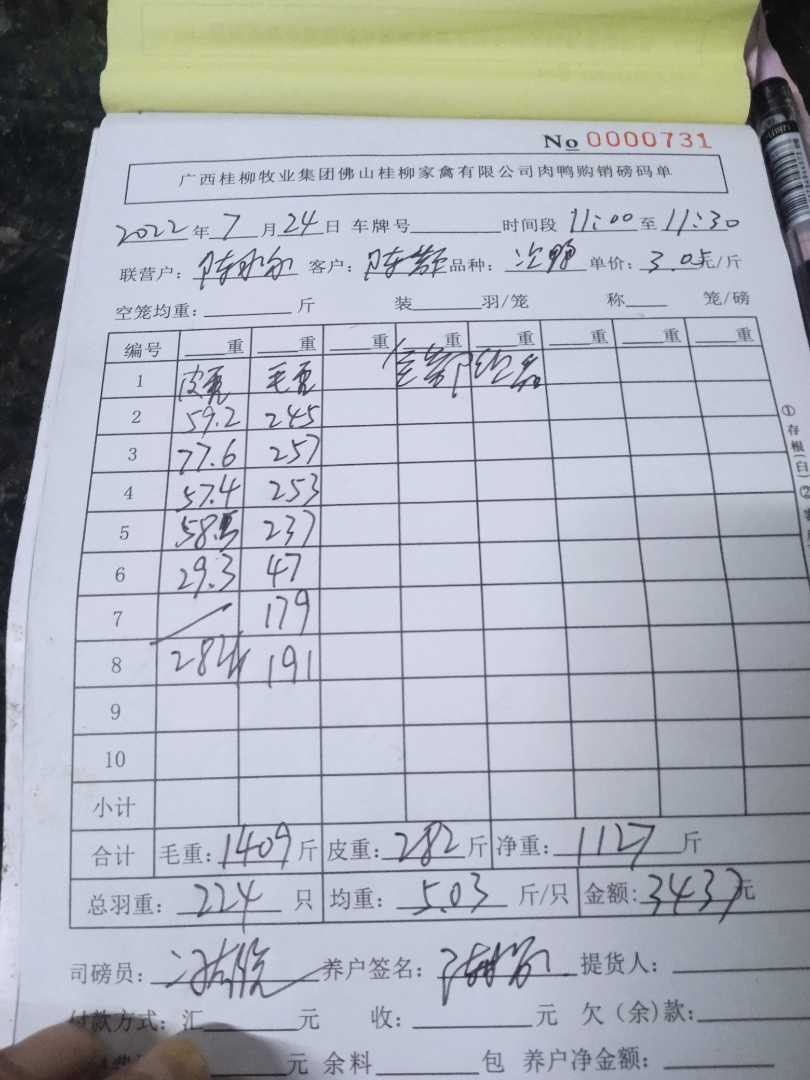 No 0000731
广西桂柳牧业集团佛山桂柳家禽有限公司肉鸭购销磅码单
2022年7月24日 车牌号 时间段 11:00至11:30
联营户: 客户: 品种: 次鸭 单价: 3.05元/斤
空笼均重: 斤 装 羽/笼 称 笼/磅
编号 重 重 重 重 重 重 重 重
1 皮重 毛重 全部
2 59.2 245
3 77.6 257
4 57.4 253
5 58.5 237
6 29.3 47
7 179
8 282 191
9
10
小计
合计 毛重: 1409斤 皮重: 282斤 净重: 1127斤
总羽重: 224只 均重: 5.03斤/只 金额: 3437元
司磅员: 养户签名: 提货人:
付款方式: 汇 元 收: 元 欠(余)款:
元 余料 包 养户净金额:
①存根(白)②